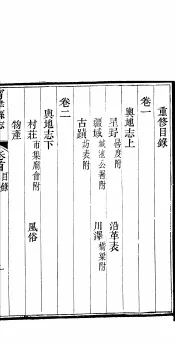 重修目錄
卷一
輿地志上
星野 晷度附 沿革表
疆域 城池公署附 川澤 橋梁附
古蹟 坊表附
卷二
輿地志下
村莊 市集廟會附 風俗
物產
縣志
卷首 目錄
一